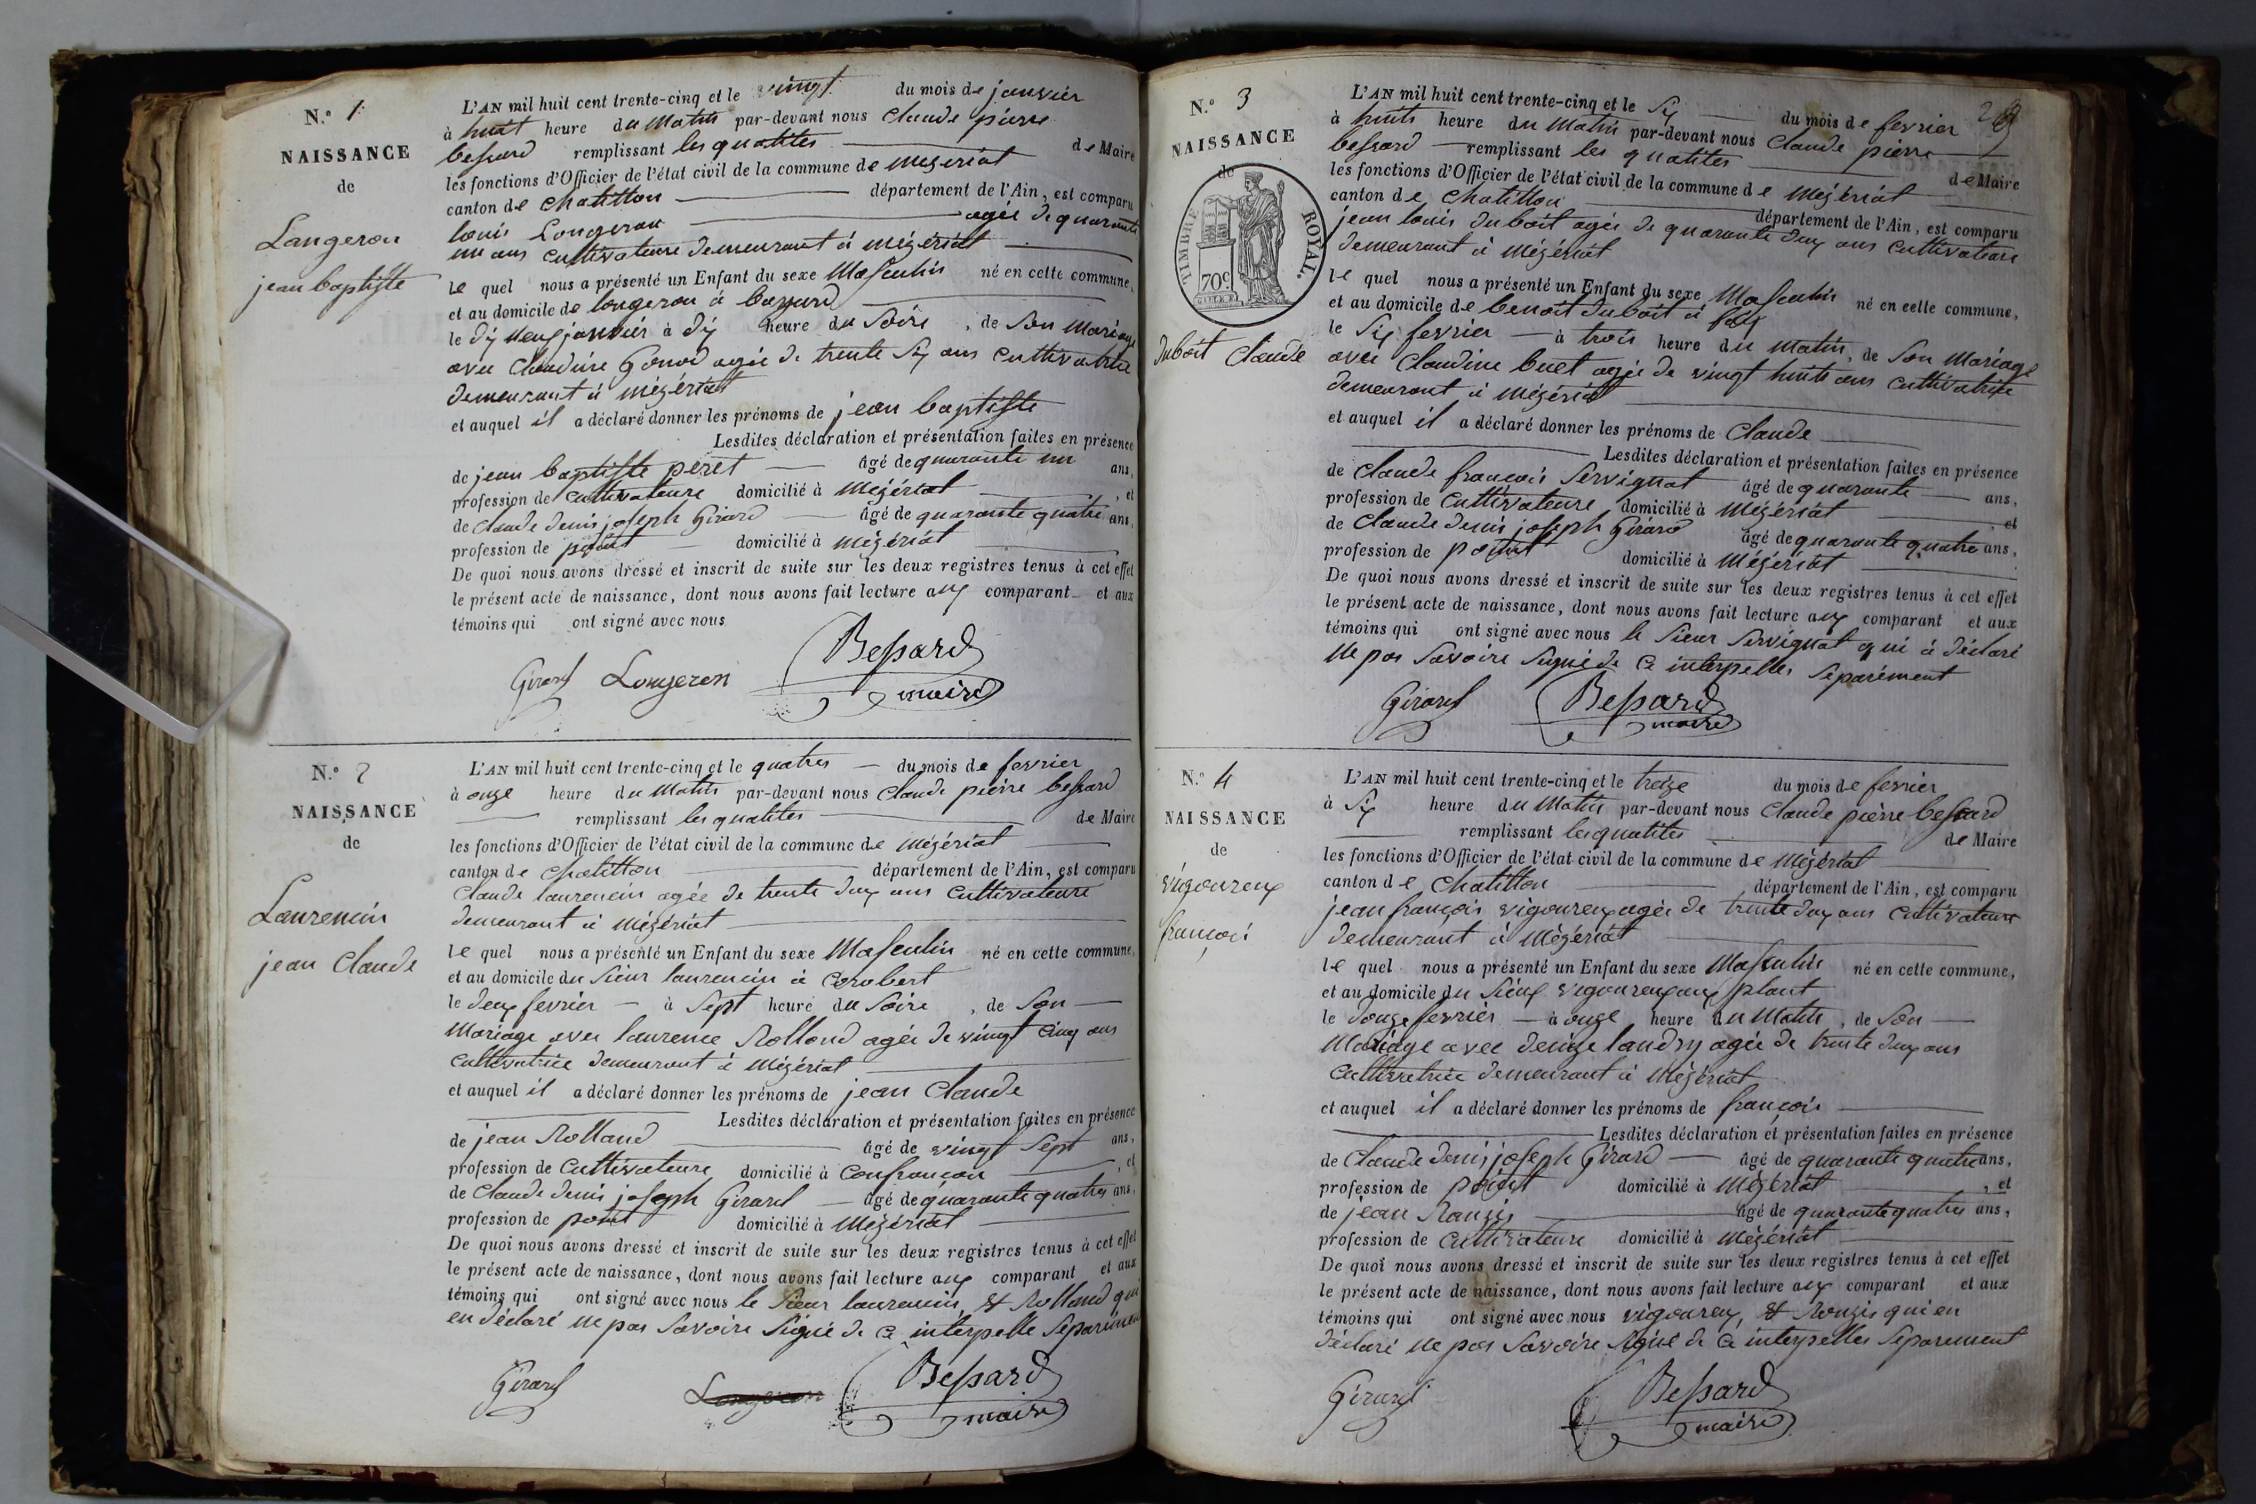 N.° 1
NAISSANCE
de
Longeron
jean baptiste
L'AN mil huit cent trente-cinq et le vingt du mois de janvier
à huit heure du Matin par-devant nous Claude pierre
bessard remplissant les qualités de Maire
les fonctions d'Officier de l'état civil de la commune de Mézériat
canton de Chatillon département de l'Ain, est comparu
louis Longeron agée de quarante
un ans Cultivateure demeurant à mézériat
le quel nous a présenté un Enfant du sexe Masculin né en cette commune,
et au domicile de longeron à
le dix neuf janvier à dix heure du Soire, de Son Mariage
avec Claudine Gonod agée de trente Six ans Cultivatrice
demeurant à mézériat
et auquel il a déclaré donner les prénoms de jean baptiste
Lesdites déclaration et présentation faites en présence
de jean baptiste peret âgé de quarante un ans,
profession de Cultivateure domicilié à Mézériat, et
de Claude denis joseph Girard âgé de quarante quatre ans,
profession de domicilié à Mézériat
De quoi nous avons dressé et inscrit de suite sur les deux registres tenus à cet effet
le présent acte de naissance, dont nous avons fait lecture aux comparant et aux
témoins qui ont signé avec nous
Girard Longeron Bessard
maire
N.° 2
NAISSANCE
de
Laurencin
jean Claude
L'AN mil huit cent trente-cinq et le quatres du mois de fevrier
à onze heure du Matin par-devant nous Claude pierre bessard
remplissant les qualités de Maire
les fonctions d'Officier de l'état civil de la commune de Mézériat
canton de Chatillon département de l'Ain, est comparu
Claude laurencin agée de trente dux ans Cultivateure
demeurant à Mézériat
le quel nous a présenté un Enfant du sexe Masculin né en cette commune,
et au domicile du Sieur laurencin à Corobert
le deux fevrier à Sept heure du Soire, de Son
Mariage avec laurence Rolland agée de vingt Cinq ans
Cultivatrice demeurant à Mézériat
et auquel il a déclaré donner les prénoms de jean Claude
Lesdites déclaration et présentation faites en présence
de jean Rolland âgé de vingt Sept ans,
profession de Cultivateure domicilié à Confrancon, et
de Claude denis joseph Girard âgé de quarante quatres ans,
profession de domicilié à Mézériat
De quoi nous avons dressé et inscrit de suite sur les deux registres tenus à cet effet
le présent acte de naissance, dont nous avons fait lecture aux comparant et aux
témoins qui ont signé avec nous le Sieur laurencin, & Rolland qui
en déclaré ne pas Savoire Signé de ce interpelle Separément
Girard Longeron Bessard
maire
N.° 3
NAISSANCE
de
TIMBRE ROYAL.
70c
dubost Claude
L'AN mil huit cent trente-cinq et le Six du mois de fevrier
à huits heure du Matin par-devant nous Claude pierre
bessard remplissant les qualités de Maire
les fonctions d'Officier de l'état civil de la commune de Mézériat
canton de Chatillon département de l'Ain, est comparu
jean louis dubost agée de quarante dux ans Cultivateure
demeurant à Mézériat
le quel nous a présenté un Enfant du sexe Masculin né en cette commune,
et au domicile de benoit dubost à
le Six fevrier à trois heure du Matin, de Son Mariage
avec Claudine buet agée de vingt huits ans Cultivatrice
demeurant à Mézériat
et auquel il a déclaré donner les prénoms de Claude
Lesdites déclaration et présentation faites en présence
de Claude françois Servignat âgé de quarante ans,
profession de Cultivateure domicilié à Mézériat, et
de Claude denis joseph Girard âgé de quarante quatre ans,
profession de domicilié à Mézériat
De quoi nous avons dressé et inscrit de suite sur les deux registres tenus à cet effet
le présent acte de naissance, dont nous avons fait lecture aux comparant et aux
témoins qui ont signé avec nous le Sieur Servignat qui à déclaré
ne pas Savoire Signé de ce interpelles Separément
Girard Bessard
maire
N.° 4
NAISSANCE
de
vigoureux
françois
L'AN mil huit cent trente-cinq et le treize du mois de fevrier
à Six heure du Matin par-devant nous Claude pierre bessard
remplissant les qualités de Maire
les fonctions d'Officier de l'état civil de la commune de Mézériat
canton de Chatillon département de l'Ain, est comparu
jean françois vigoureux agée de trente dux ans Cultivateure
demeurant à Mézériat
le quel nous a présenté un Enfant du sexe Masculin né en cette commune,
et au domicile du Sieur vigoureux aux plant
le douze fevrier à onze heure du Matin, de Son
Mariage avec denize landry agée de trente dux ans
Cultivatrice demeurant à Mézériat
et auquel il a déclaré donner les prénoms de françois
Lesdites déclaration et présentation faites en présence
de Claude denis joseph Girard âgé de quarante quatre ans,
profession de domicilié à Mézériat, et
de jean âgé de quarante quatres ans,
profession de Cultivateure domicilié à Mézériat
De quoi nous avons dressé et inscrit de suite sur les deux registres tenus à cet effet
le présent acte de naissance, dont nous avons fait lecture aux comparant et aux
témoins qui ont signé avec nous vigoureux, & qui en
déclaré ne pas Savoire Signé de ce interpelles Separement
Girard Bessard
maire